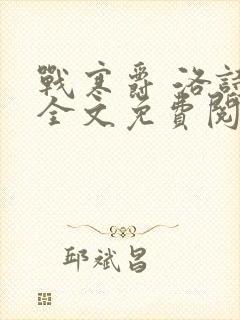 戰寒爵 洛詩
全文免費閱
邱斌昌